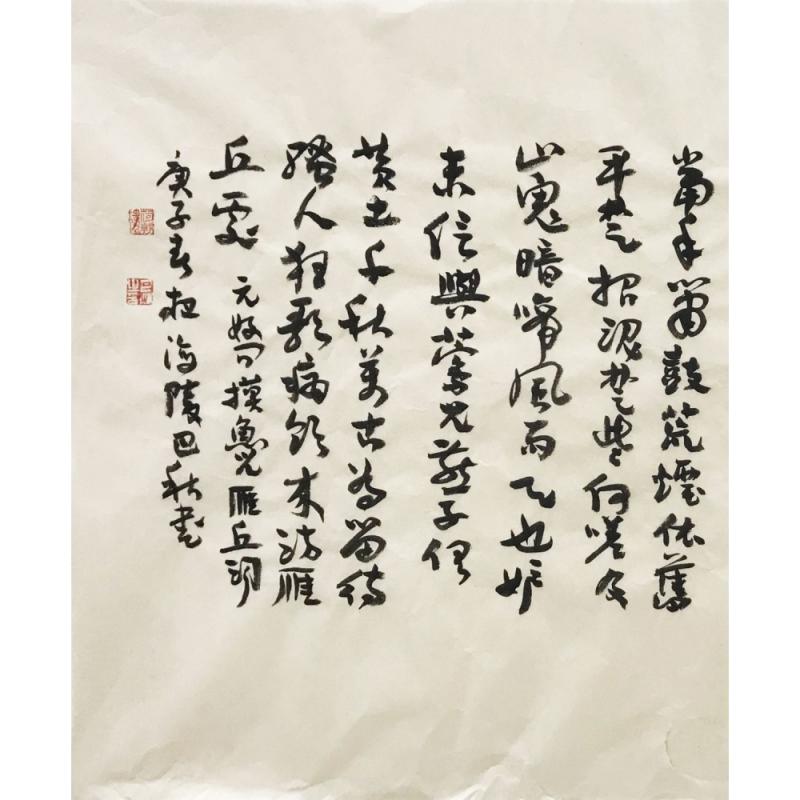 當年簫鼓荒煙依舊
平楚招魂楚些何嗟及
山鬼暗啼風雨天也妒
未信與鶯兒燕子俱
黄土千秋萬古為留待
騷人狂歌痛飲來訪雁
丘處 元好問摸魚兒雁丘詞
庚子春 海陵巴秋書